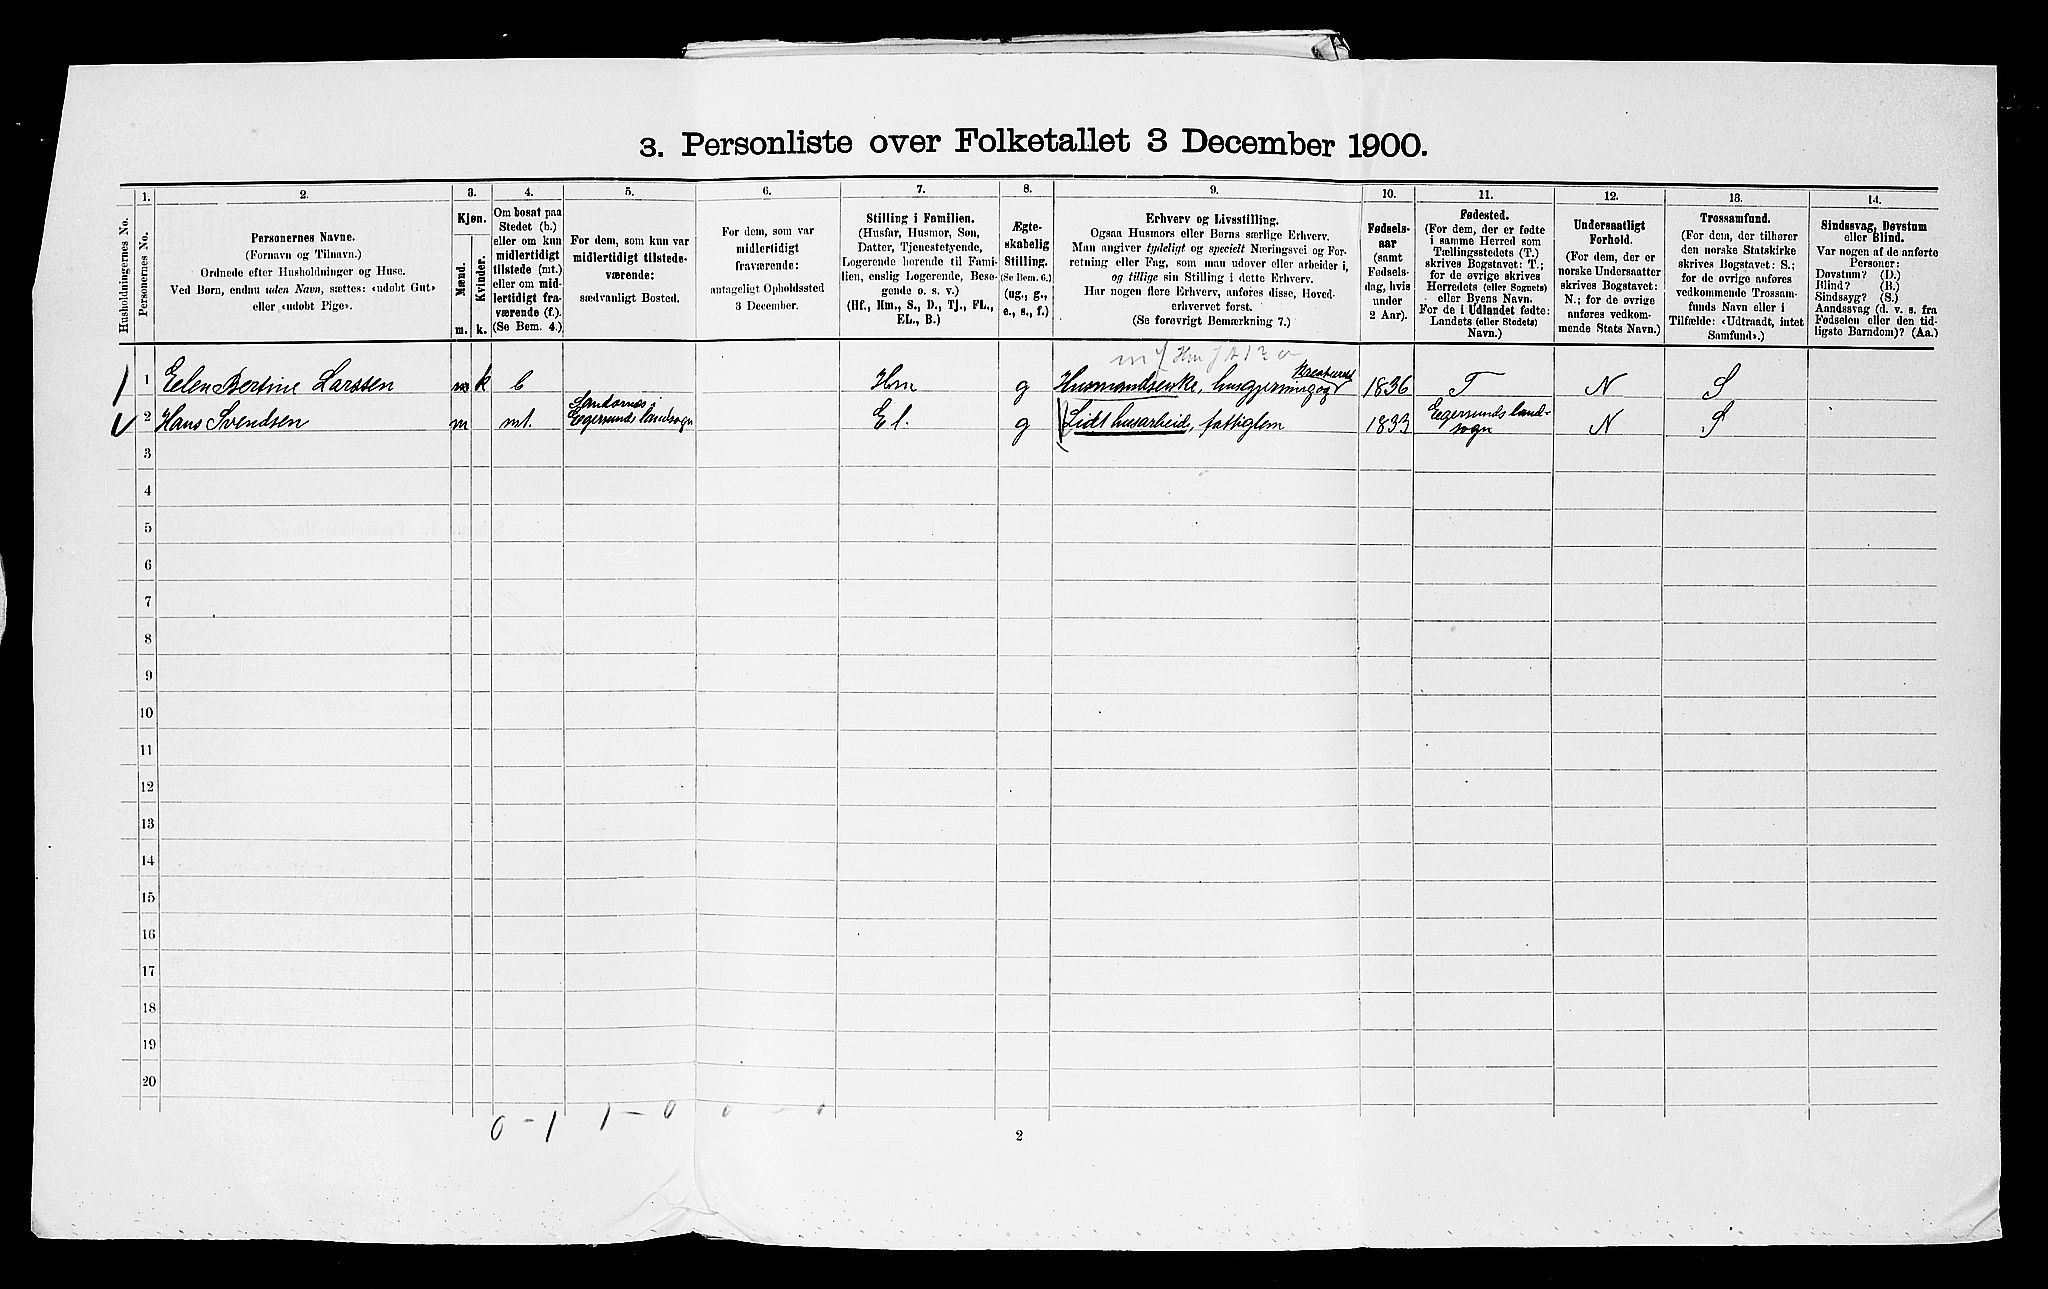 3. Personliste over Folketallet 3 December 1900.
1. 2. 3. 4. 5. 6. 7. 8. 9. 10. 11. 12. 13. 14.
Husholdningernes No.
Personernes No.
Personernes Navne.
(Fornavn og Tilnavn.)
Ordnede efter Husholdninger og Huse.
Ved Børn, endnu uden Navn, sættes: «udøbt Gut»
eller «udøbt Pige».
Kjøn.
Mænd.
Kvinder.
m. k.
Om bosat paa
Stedet (b.)
eller om kun
midlertidigt
tilstede (mt.)
eller om mid-
lertidigt fra-
værende (f.).
(Se Bem. 4.)
For dem, som kun var
midlertidigt tilstede-
værende:
sædvanligt Bosted.
For dem, som var
midlertidigt
fraværende:
antageligt Opholdssted
3 December.
Stilling i Familien.
(Husfar, Husmor, Søn,
Datter, Tjenestetyende,
Logerende hørende til Fami-
lien, enslig Logerende, Besø-
gende o. s. v.)
(Hf., Hm., S., D., Tj., FL.,
EL., B.)
Ægte-
skabelig
Stilling.
(Se Bem. 6.)
(ug., g.,
e., s., f.)
Erhverv og Livsstilling.
Ogsaa Husmors eller Børns særlige Erhverv.
Man angiver tydeligt og specielt Næringsvei og For-
retning eller Fag, som man udøver eller arbeider i,
og tillige sin Stilling i dette Erhverv.
Har nogen flere Erhverv, anføres disse, Hoved-
erhvervet først.
(Se forøvrigt Bemærkning 7.)
Fødsels-
aar
(samt
Fødsels-
dag, hvis
under
2 Aar).
Fødested.
(For dem, der er fødte
i samme Herred som
Tællingsstedets (T.)
skrives Bogstavet: T.;
for de øvrige skrives
Herredets (eller Sognets)
eller Byens Navn.
For de i Udlandet fødte:
Landets (eller Stedets)
Navn.)
Undersaatligt
Forhold.
(For dem, der er
norske Undersaatter
skrives Bogstavet:
N.; for de øvrige
anføres vedkom-
mende Stats Navn.)
Trossamfund.
(For dem, der tilhører
den norske Statskirke
skrives Bogstavet: S.;
for de øvrige anføres
vedkommende Trossam-
funds Navn eller i
Tilfælde: «Udtraadt, intet
Samfund».)
Sindssvag, Døvstum
eller Blind.
Var nogen af de anførte
Personer:
Døvstum? (D.)
Blind? (B.)
Sindssyg? (S.)
Aandssvag (d. v. s. fra
Fødselen eller den tid-
ligste Barndom)? (Aa.)
1 Eelen Bertine Larssen m k b Hm g Husmandsenke, husgjerning og Kreaturst 1836 T N S
2 Hans Svendsen m mt. i Egersunds landsogn El. g Lidt husarbeid, fattiglem 1833 Egersunds land-
sogn N S
3
4
5
6
7
8
9
10
11
12
13
14
15
16
17
18
19
20
0 - 1 1 - 0 0 - 0
2